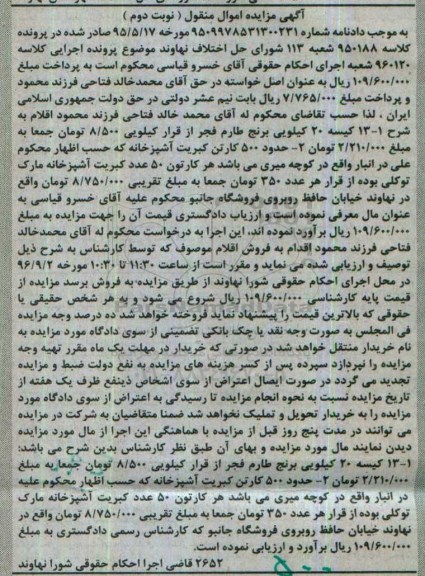 آگهی مزایده اموال منقول ( نوبت دوم )
به موجب دادنامه شماره ۹۵۰۹۹۷۸۵۳۱۳۰۰۲۳۱ مورخه ۹۵/۵/۱۷ صادر شده در پرونده
کلاسه ۹۵۰۱۸۸ شعبه ۱۱۳ شورای حل اختلاف نهاوند موضوع پرونده اجرایی کلاسه
۹۶۰۱۲۰ شعبه اجرای احکام حقوقی آقای خسرو قیاسی محکوم است به پرداخت مبلغ
۱۰۹/۶۰۰/۰۰۰ ریال به عنوان اصل خواسته در حق آقای محمدخالد فتاحی فرزند محمود
و پرداخت مبلغ ۷/۷۶۵/۰۰۰ ریال بابت نیم عشر دولتی در حق دولت جمهوری اسلامی
ایران ، لذا حسب تقاضای محکوم له آقای محمد خالد فتاحی فرزند محمود اقلام به
شرح ۱-۱۳ کیسه ۲۰ کیلویی برنج طارم فجر از قرار کیلویی ۸/۵۰۰ تومان جمعا به
مبلغ ۲/۲۱۰/۰۰۰ تومان ۲- حدود ۵۰۰ کارتن کبریت آشپزخانه که حسب اظهار محکوم
علی در انبار واقع در کوچه میری می باشد هر کارتون ۵۰ عدد کبریت آشپزخانه مارک
توکلی بوده از قرار هر عدد ۳۵۰ تومان جمعا به مبلغ تقریبی ۸/۷۵۰/۰۰۰ تومان واقع
در نهاوند خیابان حافظ روبروی فروشگاه جانبو محکوم علیه آقای خسرو قیاسی به
عنوان مال معرفی نموده است و ارزیاب دادگستری قیمت آن را جهت مزایده به مبلغ
۱۰۹/۶۰۰/۰۰۰ ریال برآورد نموده اند، این اجرا به درخواست محکوم له آقای محمدخالد
فتاحی فرزند محمود اقدام به فروش اقلام موصوف که توسط کارشناس به شرح ذیل
توصیف و ارزیابی شده می نماید و مقرر است از ساعت ۱۱:۳۰ تا ۱۰:۳۰ مورخه ۹۶/۹/۲
در محل اجرای احکام حقوقی شورا نهاوند از طریق مزایده به فروش برسد مزایده از
قیمت پایه کارشناسی ۱۰۹/۶۰۰/۰۰۰ ریال شروع می شود و به هر شخص حقیقی یا
حقوقی که بالاترین قیمت را پیشنهاد نماید فروخته خواهد شد ده درصد وجه مزایده
فی المجلس به صورت وجه نقد یا چک بانکی تضمینی از سوی دادگاه مورد مزایده به
نام خریدار منتقل خواهد شد در صورتی که خریدار در مهلت یک ماه مقرر تهیه وجه
مزایده را نپردازد سپرده پس از کسر هزینه های مزایده به نفع دولت ضبط و مزایده
تجدید می گردد در صورت ایصال اعتراض از سوی اشخاص ذینفع ظرف یک هفته از
تاریخ مزایده نسبت به نحوه انجام مزایده تا رسیدگی به اعتراض از سوی دادگاه مورد
مزایده را به خریدار تحویل و تملیک نخواهد شد ضمنا متقاضیان به شرکت در مزایده
می توانند در مدت پنج روز قبل از مزایده با هماهنگی این اجرا از مال مورد مزایده
دیدن نمایند مال مورد مزایده و بهای آن طبق نظر کارشناس بدین شرح می باشد:
۱-۱۳ کیسه ۲۰ کیلویی برنج طارم فجر از قرار کیلویی ۸/۵۰۰ تومان جمعا به مبلغ
۲/۲۱۰/۰۰۰ تومان ۲- حدود ۵۰۰ کارتن کبریت آشپزخانه که حسب اظهار محکوم علیه
در انبار واقع در کوچه میری می باشد هر کارتون ۵۰ عدد کبریت آشپزخانه مارک
توکلی بوده از قرار هر عدد ۳۵۰ تومان جمعا به مبلغ تقریبی ۸/۷۵۰/۰۰۰ تومان واقع در
نهاوند خیابان حافظ روبروی فروشگاه جانبو که کارشناس رسمی دادگستری به مبلغ
۱۰۹/۶۰۰/۰۰۰ ریال برآورد و ارزیابی نموده است.
۲۶۵۲ قاضی اجرا احکام حقوقی شورا نهاوند